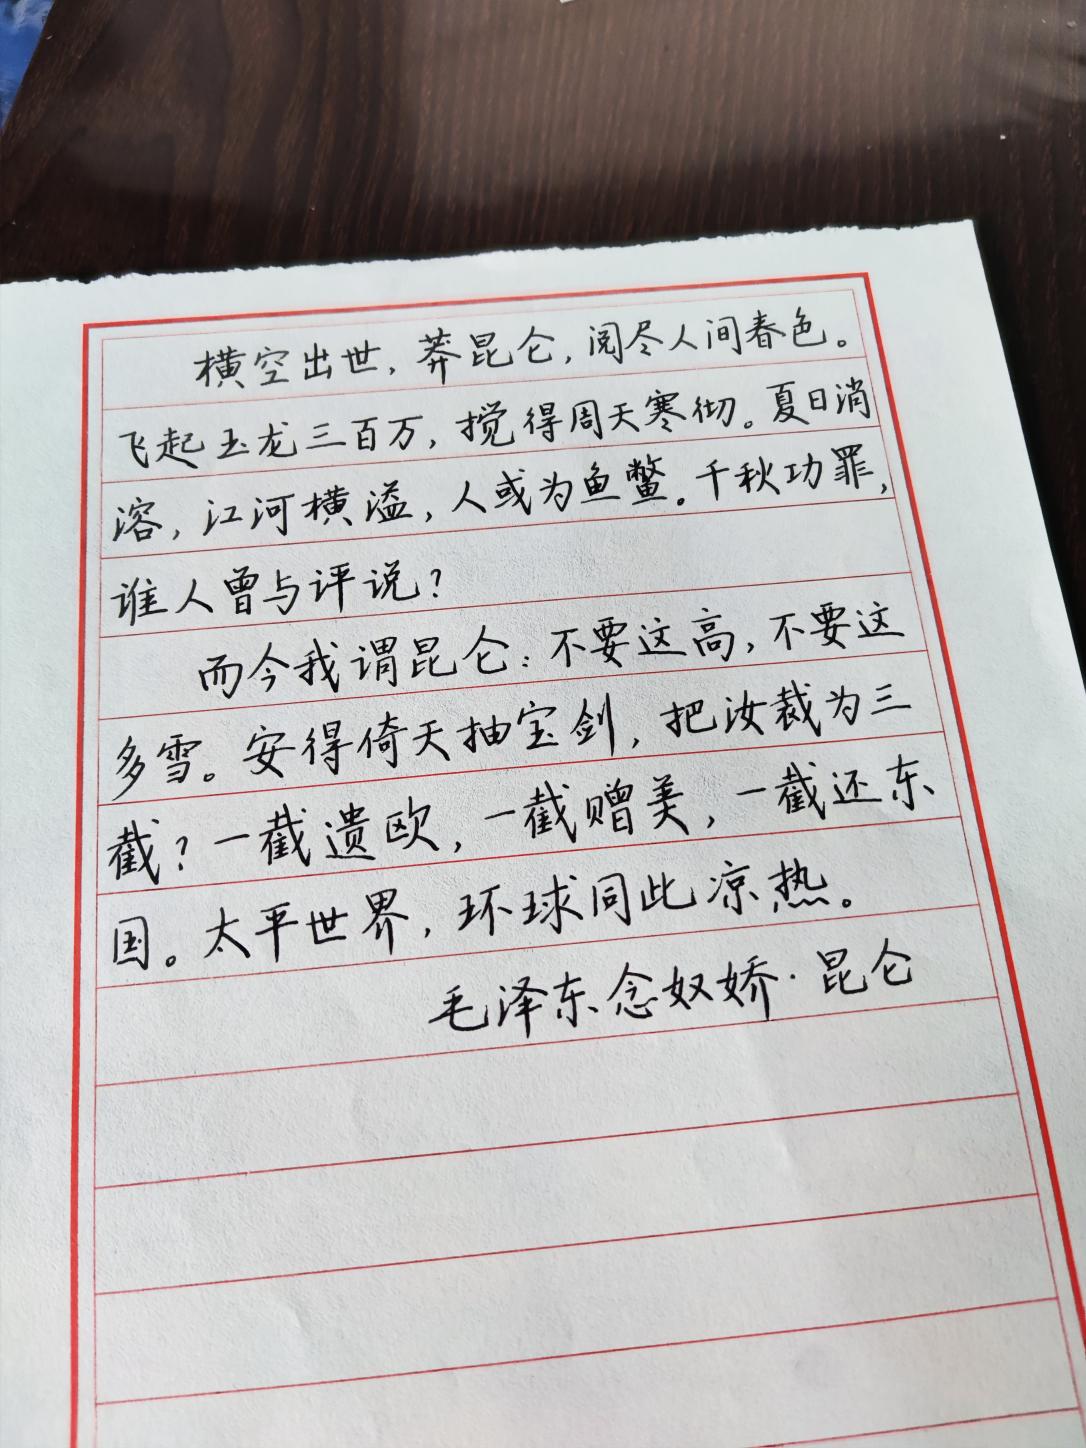 横空出世，莽昆仑，阅尽人间春色。
飞起玉龙三百万，搅得周天寒彻。夏日消
溶，江河横溢，人或为鱼鳖。千秋功罪，
谁人曾与评说？
而今我谓昆仑：不要这高，不要这
多雪。安得倚天抽宝剑，把汝裁为三
截？一截遗欧，一截赠美，一截还东
国。太平世界，环球同此凉热。
毛泽东念奴娇·昆仑